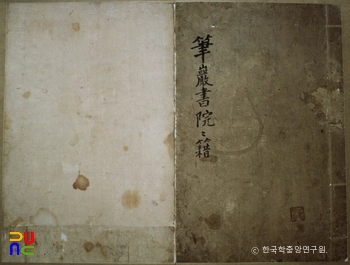 筆巖書院〻籍
ⓒ 한국학중앙연구원